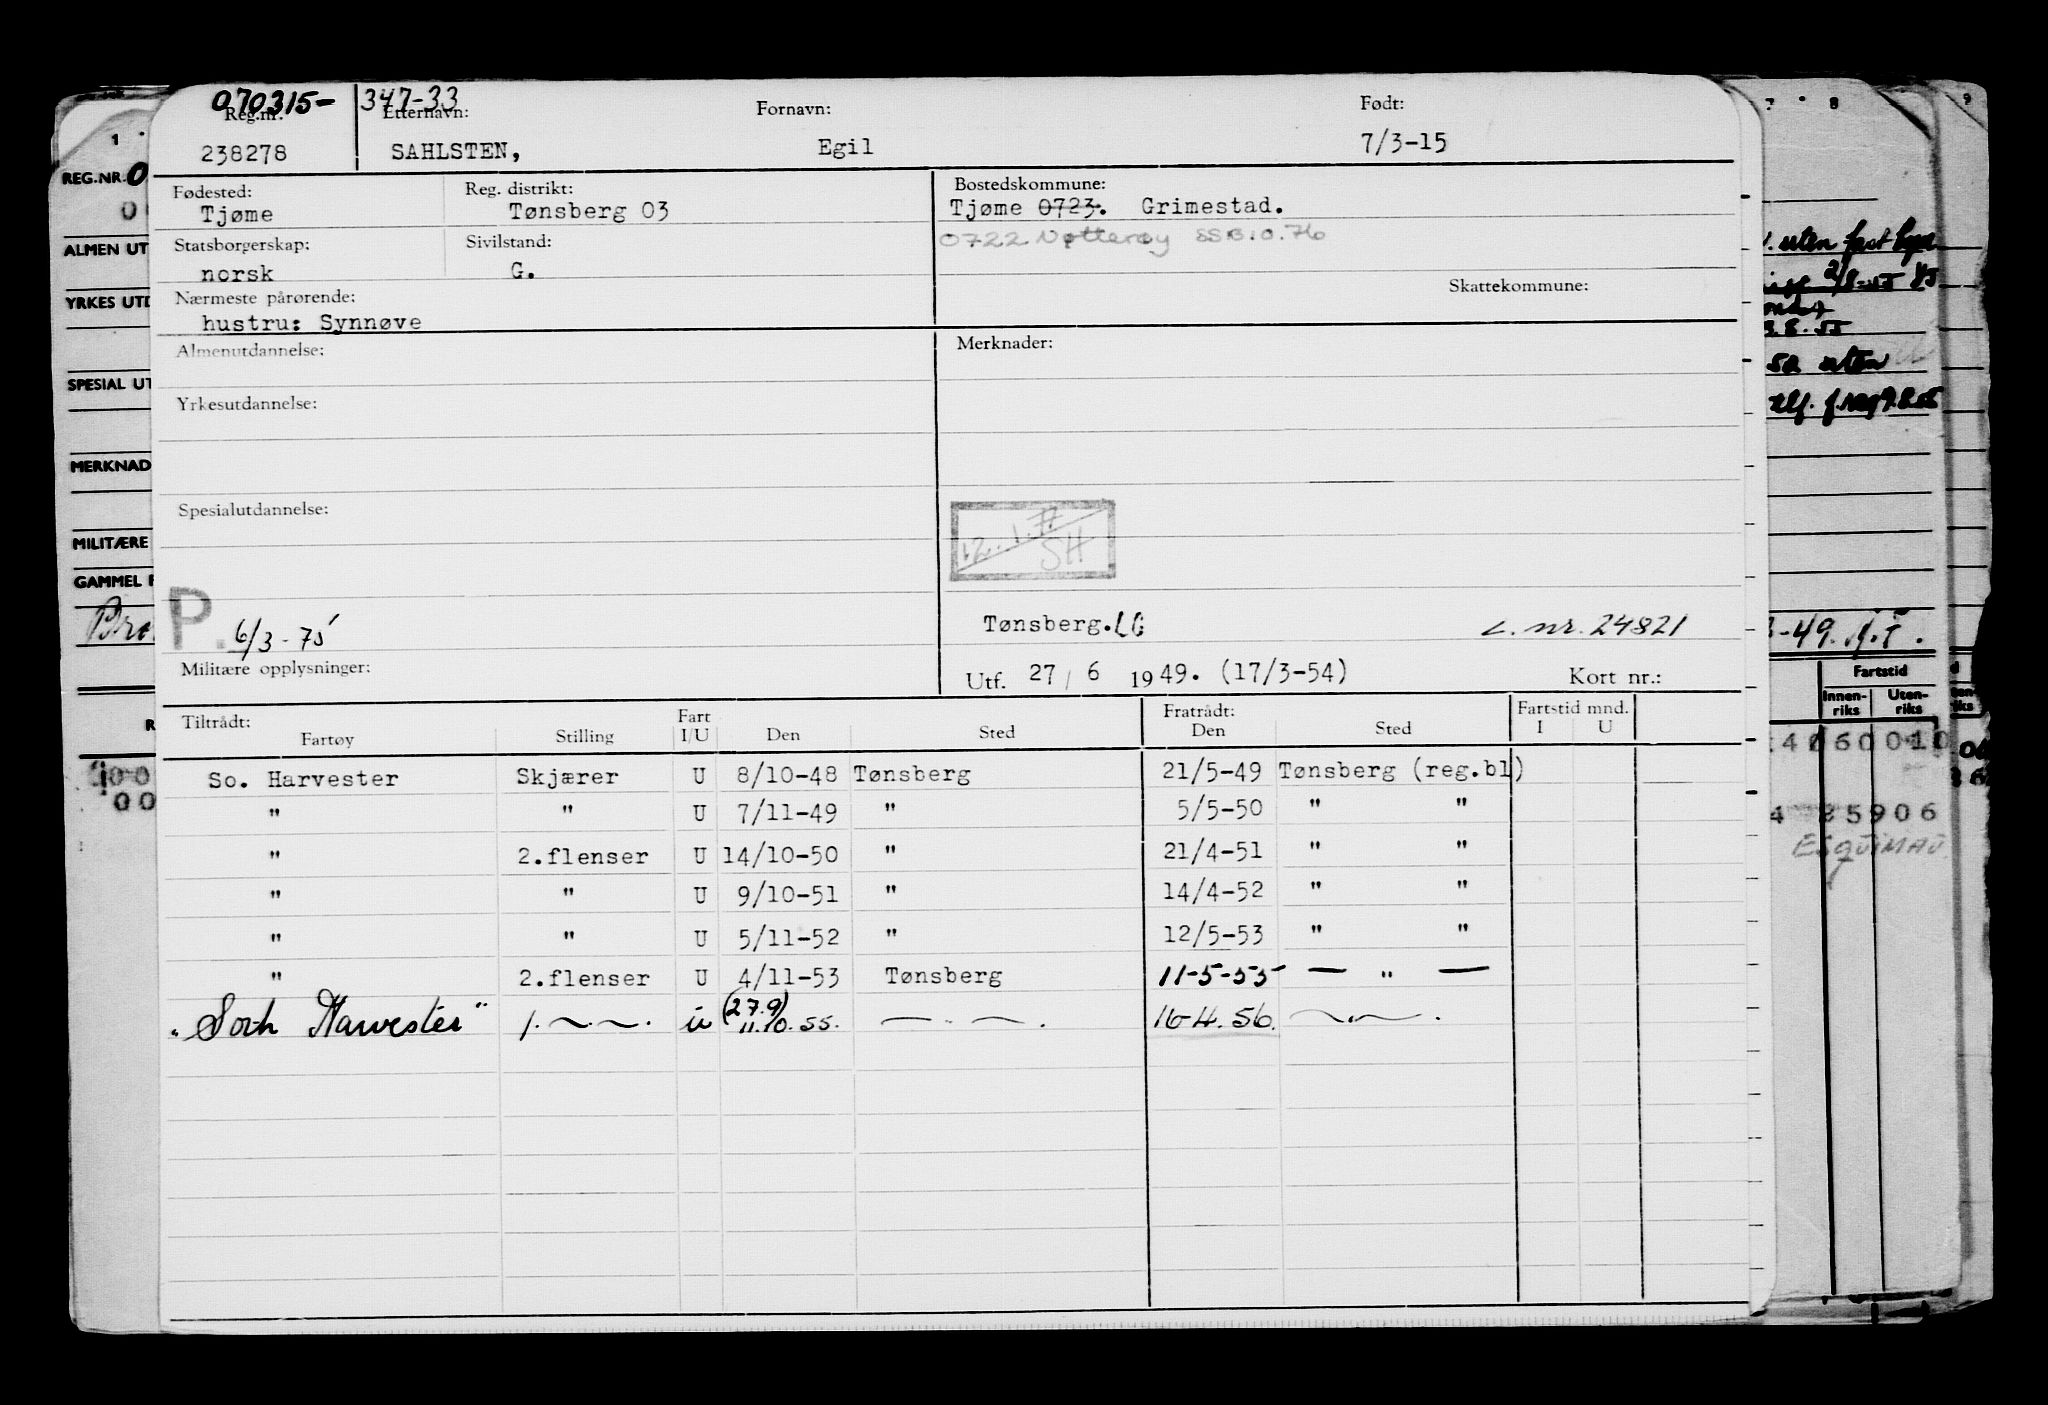 070315- 347-33
Reg.nr. Etternavn: Fornavn: Født:
238278 SAHLSTEN, Egil 7/3-15
Fødested: Reg. distrikt: Bostedskommune:
Tjøme Tønsberg 03 Tjøme 0723. Grimestad.
0722 Nøtterøy SSB.10.76
Statsborgerskap: Sivilstand:
norsk G.
Nærmeste pårørende: Skattekommune:
hustru: Synnøve
Almenutdannelse: Merknader:
Yrkesutdannelse:
Spesialutdannelse:
12.1. SH
P. 6/3-75
Tønsberg. LG L. nr. 24821
Militære opplysninger: Utf. 27/6 1949. (17/3-54) Kort nr.:
Tiltrådt: Fart Fratrådt: Fartstid mnd.
Fartøy Stilling I/U Den Sted Den Sted I U
So. Harvester Skjærer U 8/10-48 Tønsberg 21/5-49 Tønsberg (reg.bl)
" " U 7/11-49 " 5/5-50 " "
" 2.flenser U 14/10-50 " 21/4-51 " "
" " U 9/10-51 " 14/4-52 " "
" " U 5/11-52 " 12/5-53 " "
" 2.flenser U 4/11-53 Tønsberg 11-5-55 — " —
(27.9)
"Soth Harvester" 1. —"— U 11.10.55. —"— 16-4.56. —"—
1
REG.NR. 0
ALMEN UT
YRKES UTD
SPESIAL UT
MERKNAD
MILITÆRE
GAMMEL F
R
7 8 9
uten fast
50 uten
-49.
Fartstid
Innen-riks Uten-riks
4 060010
25906
ESQUIMAU